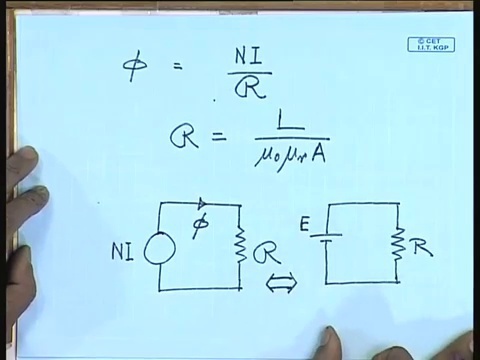 © CET
I.I.T. KGP
ϕ = NI / ℛ
ℛ = L / μ₀ μᵣ A
NI ϕ ℛ ⇔ E R